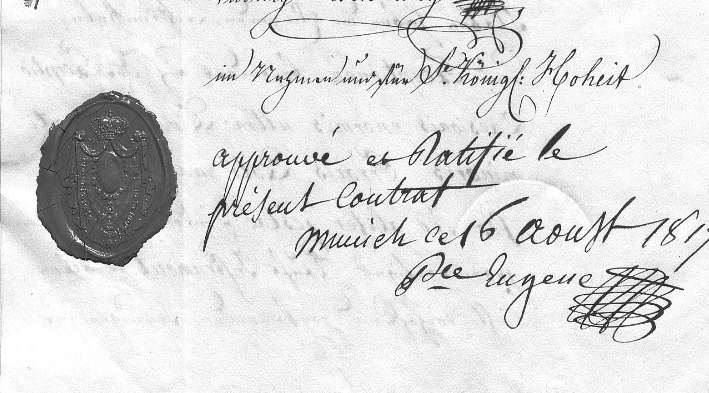 im Nahmen und für Sr Königl: Hoheit
approuvé et Ratifié le
présent Contrat
Munich ce 16 Aoust 1817
Pce Eugene